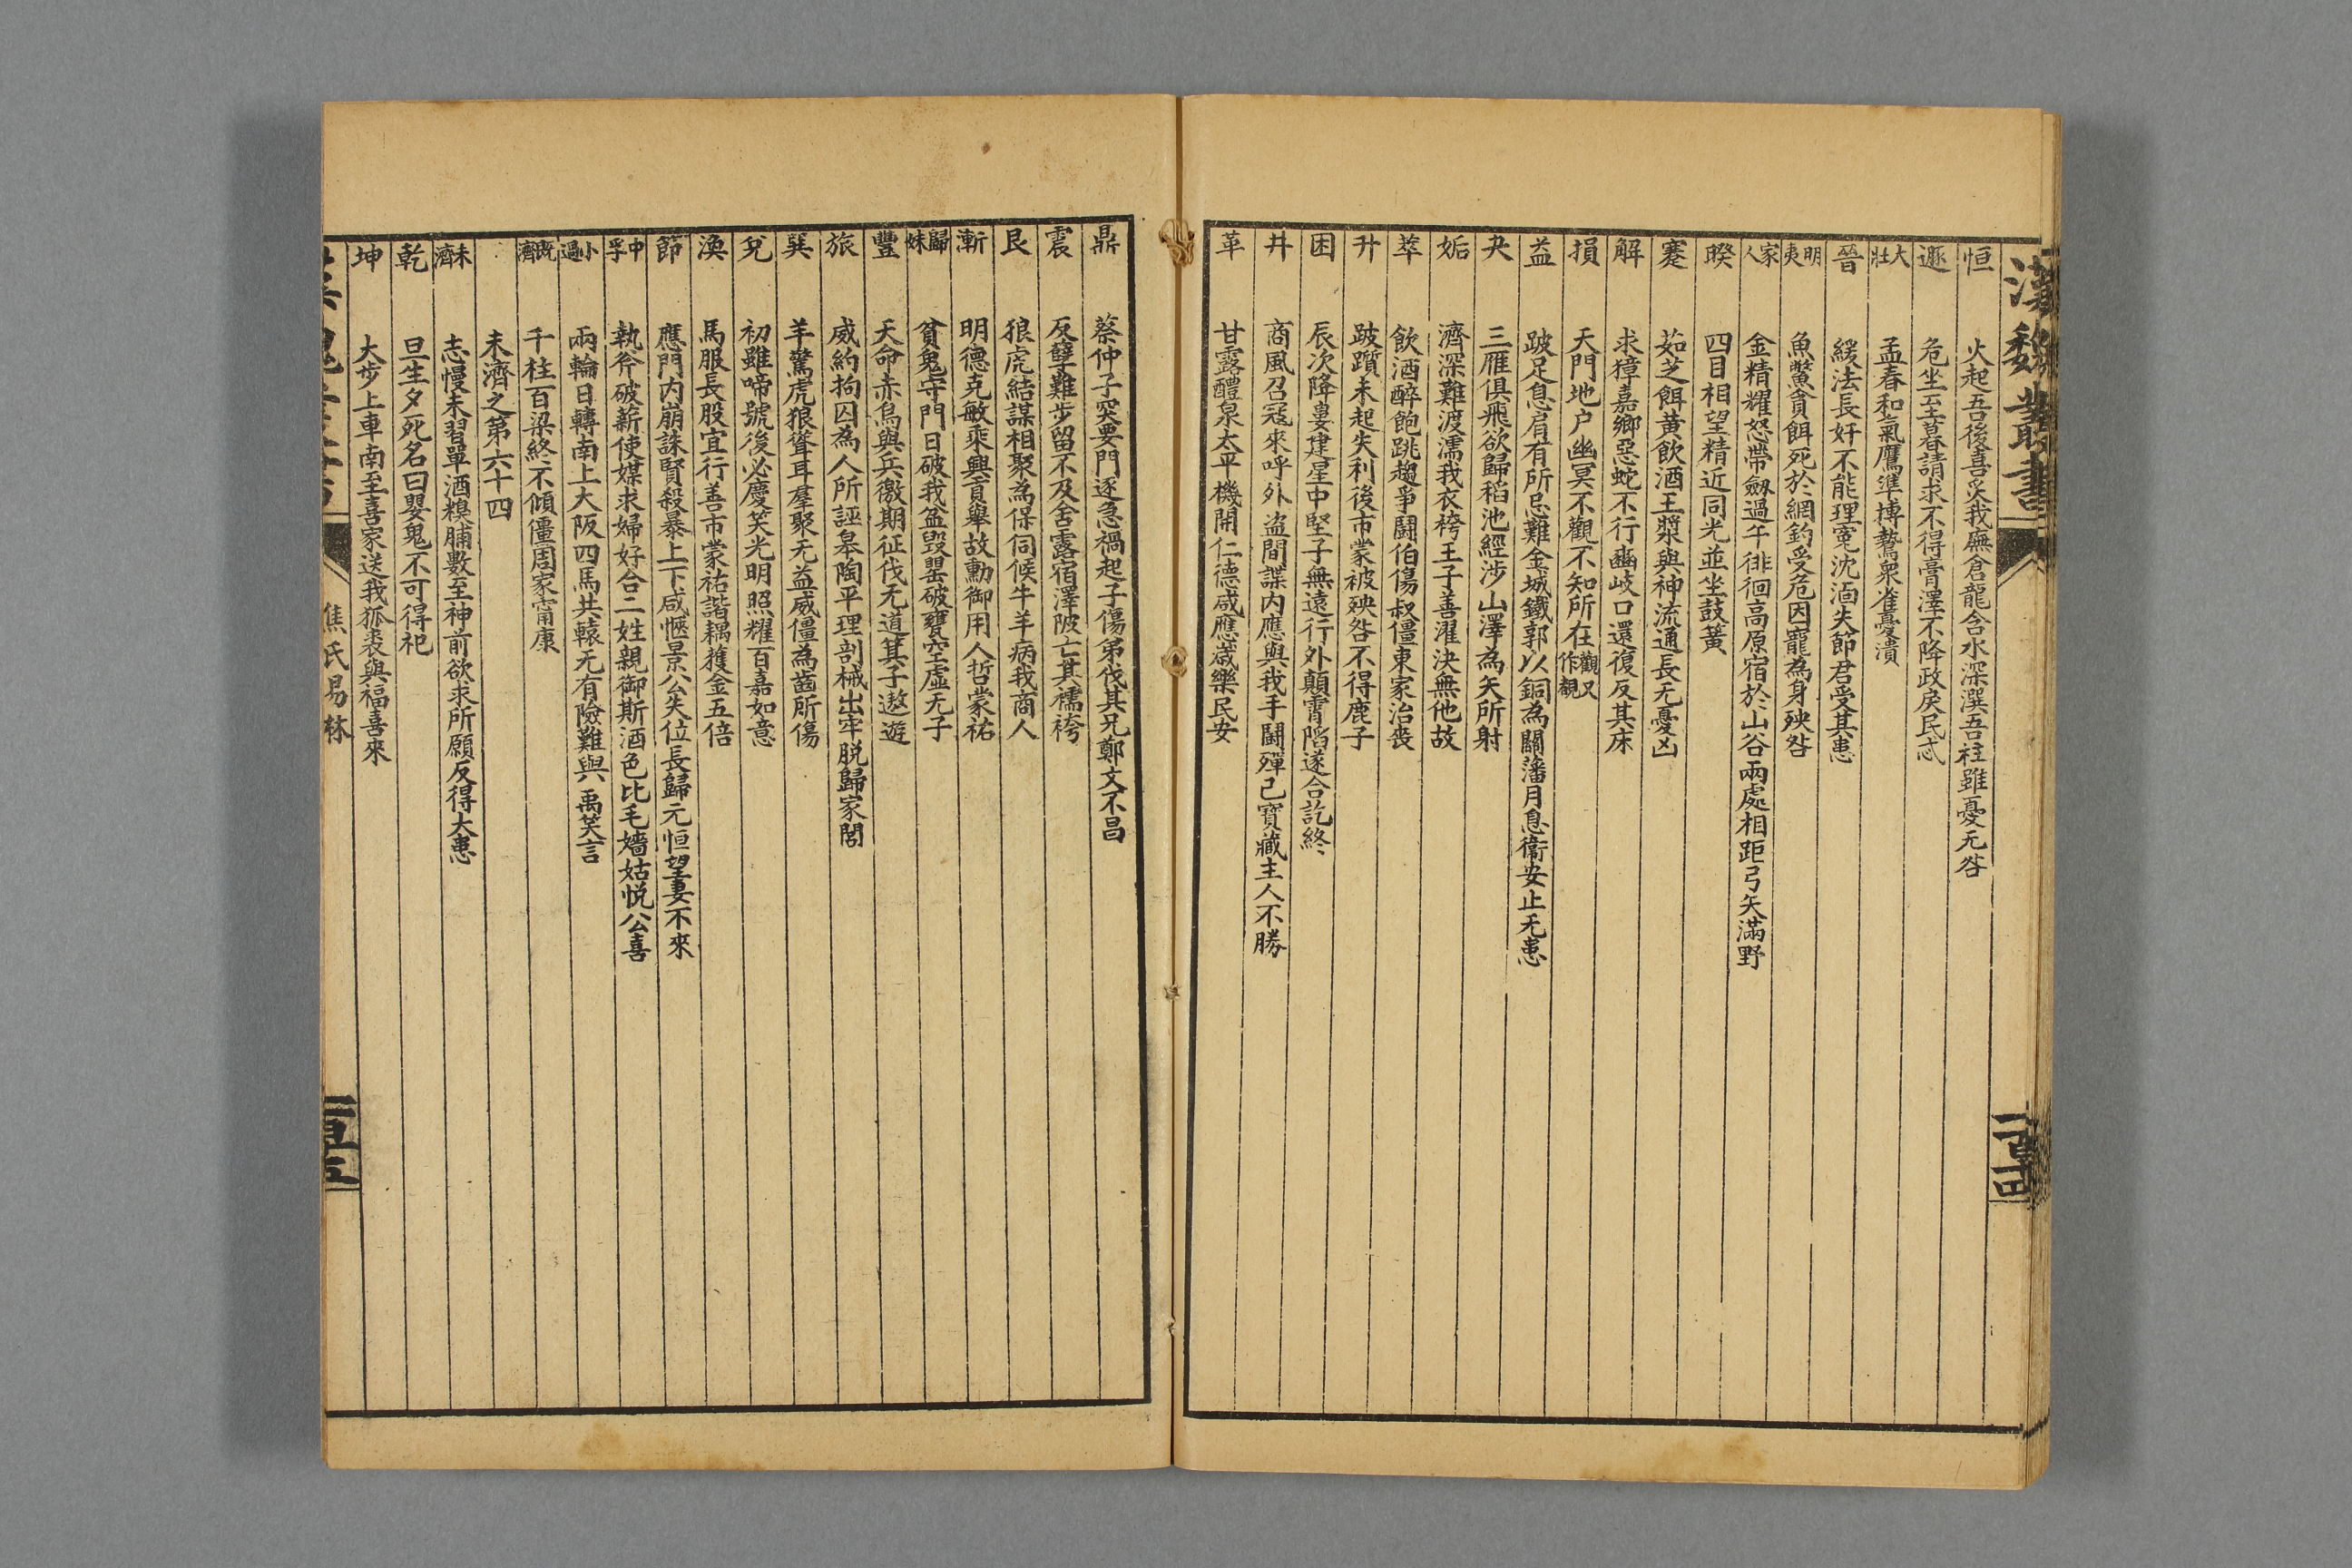 漢魏叢書
一百四
恒 火起吾後喜炙我廡倉龍含水深潠吾柱雖憂无咎
遯 危坐至暮請求不得膏澤不降政戾民忒
大壯 孟春和氣鷹準搏鷙衆雀憂潰
晉 緩法長奸不能理冤沈湎失節君受其患
明夷 魚鱉貪餌死於網釣受危因寵為身殃咎
家人 金精耀怒帶劔過午徘徊高原宿於山谷兩處相距弓矢滿野
睽 四目相望精近同光並坐鼓簧
蹇 茹芝餌黄飲酒王漿與神流通長无憂凶
解 求獐嘉鄉惡蛇不行幽岐口還復反其床
損 天門地户幽冥不觀不知所在觀又作覩
益 跛足息肩有所忌難金城鐵郭以銅為關藩月息衞安止无患
夬 三雁俱飛欲歸稻池經涉山澤為矢所射
姤 濟深難渡濡我衣袴王子善濯決無他故
萃 飲酒醉飽跳趨爭鬪伯傷叔僵東家治喪
升 跛躓未起失利後市蒙被殃咎不得鹿子
困 辰次降婁建星中堅子無遠行外顛霄陷遂合訖終
井 商風召寇來呼外盗間諜内應與我手鬪殫己寳藏主人不勝
革 甘露醴泉太平機開仁德感應嵗樂民安
鼎 蔡仲子突要門逐急禍起子傷弟伐其兄鄭文不昌
震 反孽難步留不及舍露宿澤陂亡其襦袴
艮 狼虎結謀相聚為保伺候牛羊病我商人
漸 明德克敏乘興貢舉故勳御用人哲蒙祐
歸妹 貧鬼守門日破我盆毁罌破甕空虛无子
豐 天命赤烏與兵徼期征伐无道箕子遨遊
旅 威約拘囚為人所誣皋陶平理剖械出牢脱歸家閭
巽 羊驚虎狼聳耳羣聚无益威僵為齒所傷
兌 初雖啼號後必慶笑光明照耀百嘉如意
渙 馬服長股宜行善市蒙祐諧耦獲金五倍
節 應門内崩誅賢殺暴上下咸愜景公失位長歸元恒望妻不來
中孚 執斧破薪使媒求婦好合二姓親御斯酒色比毛嬙姑悦公喜
小過 兩輪日轉南上大阪四馬共轅无有險難與禹笑言
既濟 千柱百梁終不傾僵周家甯康
未濟之第六十四
未濟 志慢未習單酒糗脯數至神前欲求所願反得大患
乾 旦生夕死名曰嬰鬼不可得祀
坤 大步上車南至喜家送我狐裘與福喜來
焦氏易林
一百五